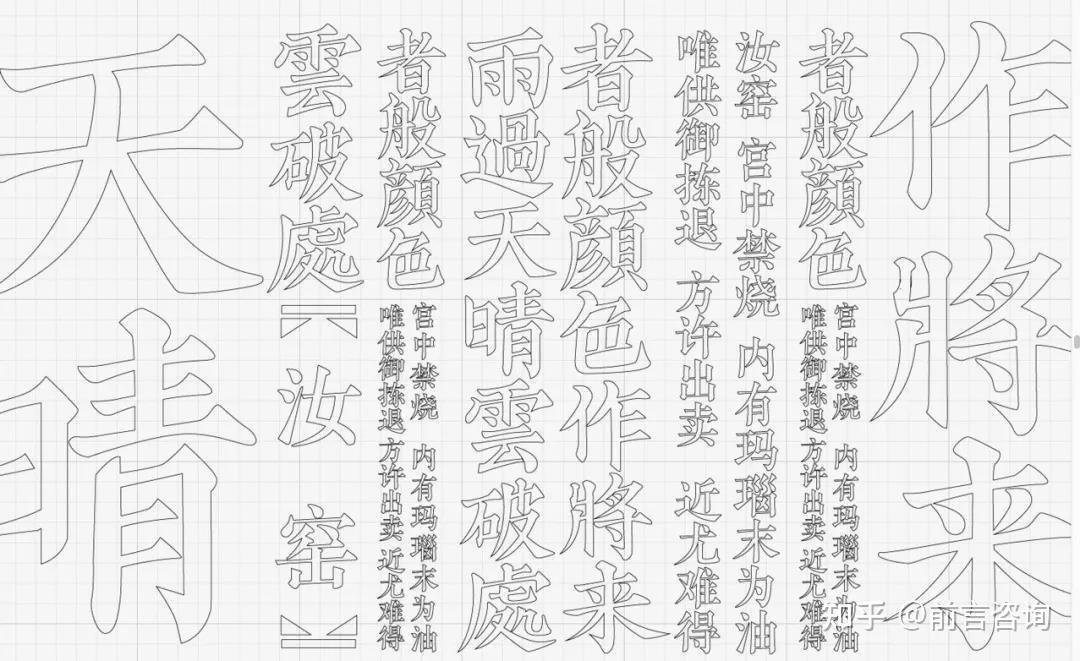 作將来
者般顔色
宫中禁烧 内有玛瑙末为油
唯供御拣退 方许出卖 近尤难得
汝窑 宫中禁烧 内有玛瑙末为油
唯供御拣退 方许出卖 近尤难得
者般顔色作將来
雨過天晴雲破處
者般顔色
宫中禁烧 内有玛瑙末为油
唯供御拣退 方许出卖 近尤难得
雲破處
【汝窑】
天晴
知乎 @前言咨询